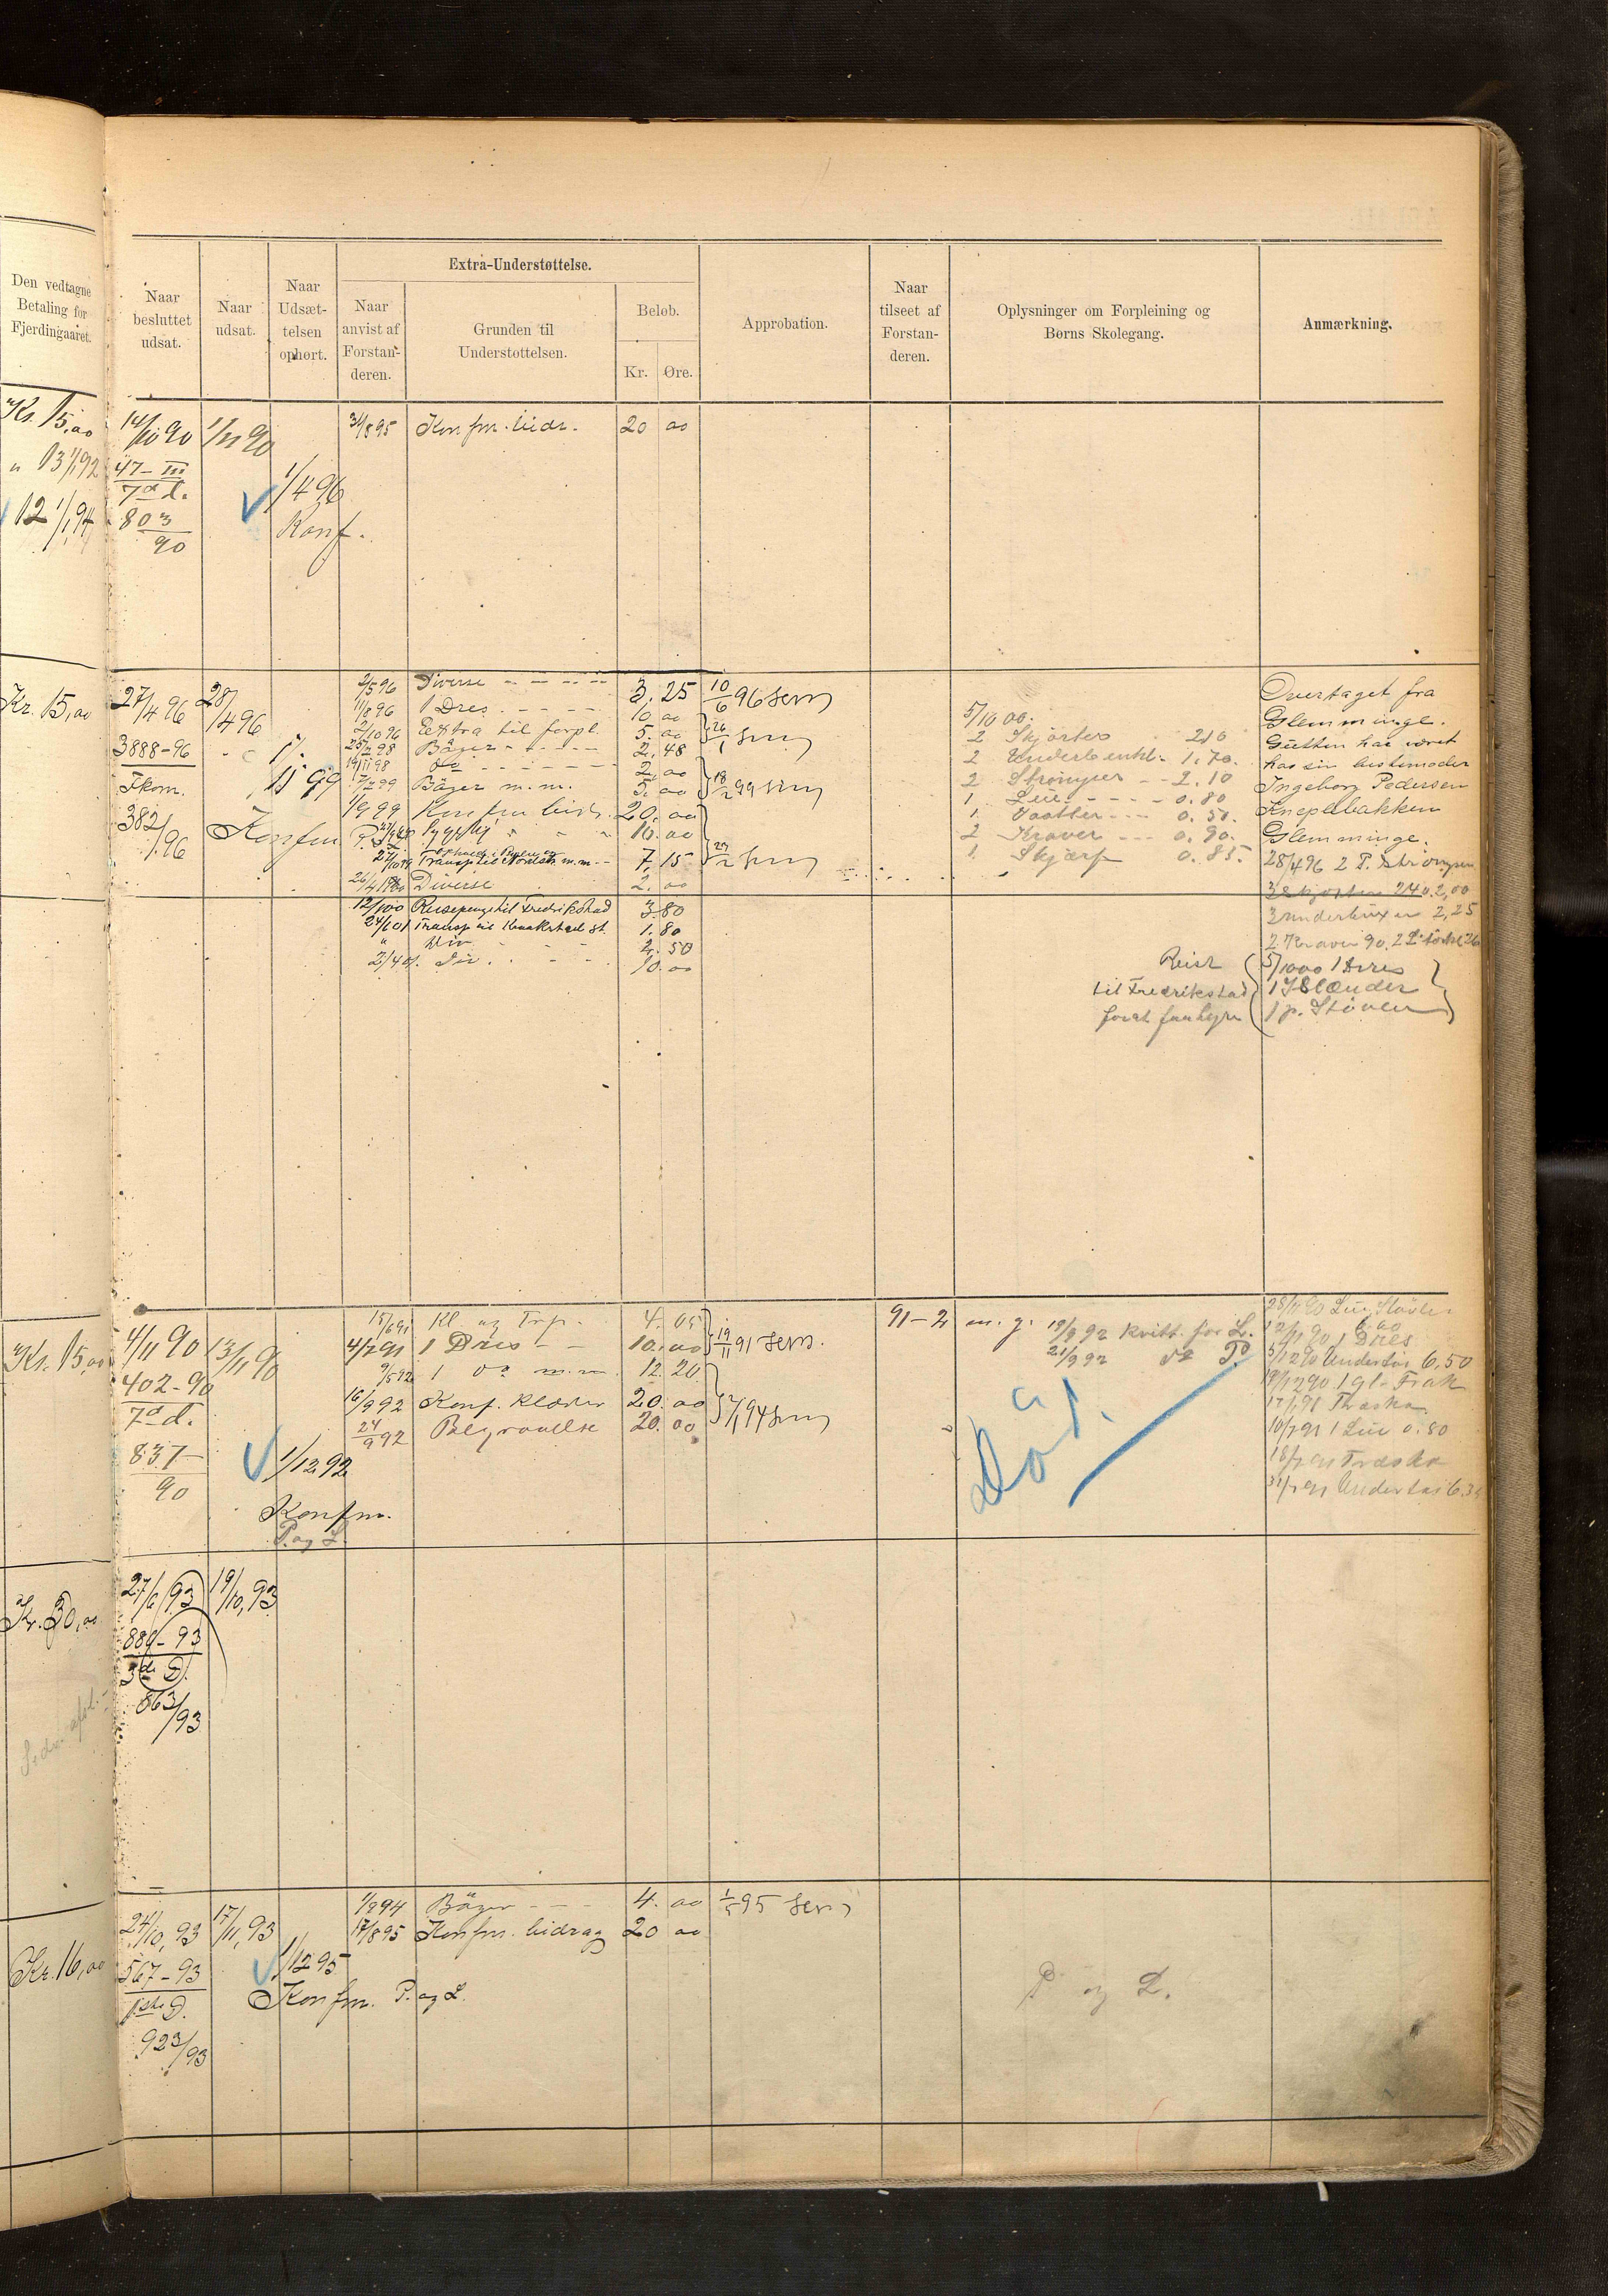 Den vedtagne
Betaling for
Fjerdingaaret.
Naar
besluttet
udsat.
Naar
udsat.
Naar
Udsæt-
telsen
ophørt.
Extra-Understøttelse.
Naar
anvist af
Forstan-
deren.
Grunden til
Understøttelsen.
Beløb.
Kr. Øre.
Approbation.
Naar
tilseet af
Forstan-
deren.
Oplysninger om Forpleining og
Børns Skolegang.
Anmærkning.
Kr. 15,00 14/10 90 1/11 90 31/8 95 Konfm. bidr. 20 00
" 13 1/1 92 47-III
7de d.
12 1/1 94 803
90
1/4 96
Konf.
Kr. 15,00 27/4 96 28/4 96
3888-96
Fkom.
382/96
1/11 99
Konfm
2/5 96 Diverse - - - - 3.25 10/6 96 sem
11/8 96 1 Dres - - - - 10.00
2/10 96 Extra til forpl. 5.00
25/2 98 Bøger - - - - 2.48
19/11 98 do - - - - 2.00
7/2 99 Bøger m.m. 5.00 18/2 99
1/9 99 Konfm bidr. 20.00
10.00
Transp til m.m. - 7.15
26/4 1900 Diverse 2.00
12/1 00 Reisepenge til Fredrikstad 3.80
24/1 01 Transp til st. 1.80
" Div 2.50
2/4 01 Div. - - - 10.00
5/10 00.
2 Skjorter - 210
2 Underbenkl. 1.70.
2 Strømper - - 2.10
1. Lue - - - - 0.80
1. Vaatter - - - 0.50.
2 Kraver - - - 0.90.
1. Skjærf 0.85.
Overtaget fra
Glemminge.
Gutten har været
hos sin bestemoder
Ingeborg Pedersen
Kneplebakken
Glemminge.
28/4 96 2 P. Strømper
3 Skjorter 240. 2,00
3 underbuxer 2,25
2 Kraver 90.
Reist
til Fredrikstad
forat faa hyre
5/10 00 1 Dres
1 Islænder
1 p. Støvler
Kr. 15,00 4/11 90 13/11 90
402-90
7de d.
837
90
1/12 92
Konfm.
P. og L.
15/6 91 Kl. og Trp. 4.05
4/7 91 1 Dres - - 10.00 19/11 91 sem.
9/5 92 1 do m.m. 12.20
16/9 92 Konf. Klæder 20.00
24/9 92 Begravelse 20.00
91-2 m. g. 19/9 92 kvitt. for L.
21/9 92 do P.
Død.
28/11 90 Lue, Støvler
12/11 90 1 Dres 6.00
5/12 90 Undertøi 6.50
19/12 90 1 gl. Frak
17/1 91 Træsko
10/7 91 1 Lue 0.80
18/7 91 Træsko
31/7 91 Undertøi
Kr. 30,00 27/6 93 19/10, 93
889-93
3die D.
863/93
Kr. 16,00 24/10, 93 17/11, 93
567-93
1ste D.
923/93
1/12 95
Konfm. P. og L.
1/2 94 Bøger - - - 4.00 1/5 95 sem
17/8 95 Konfm. bidrag 20 00
P og L.